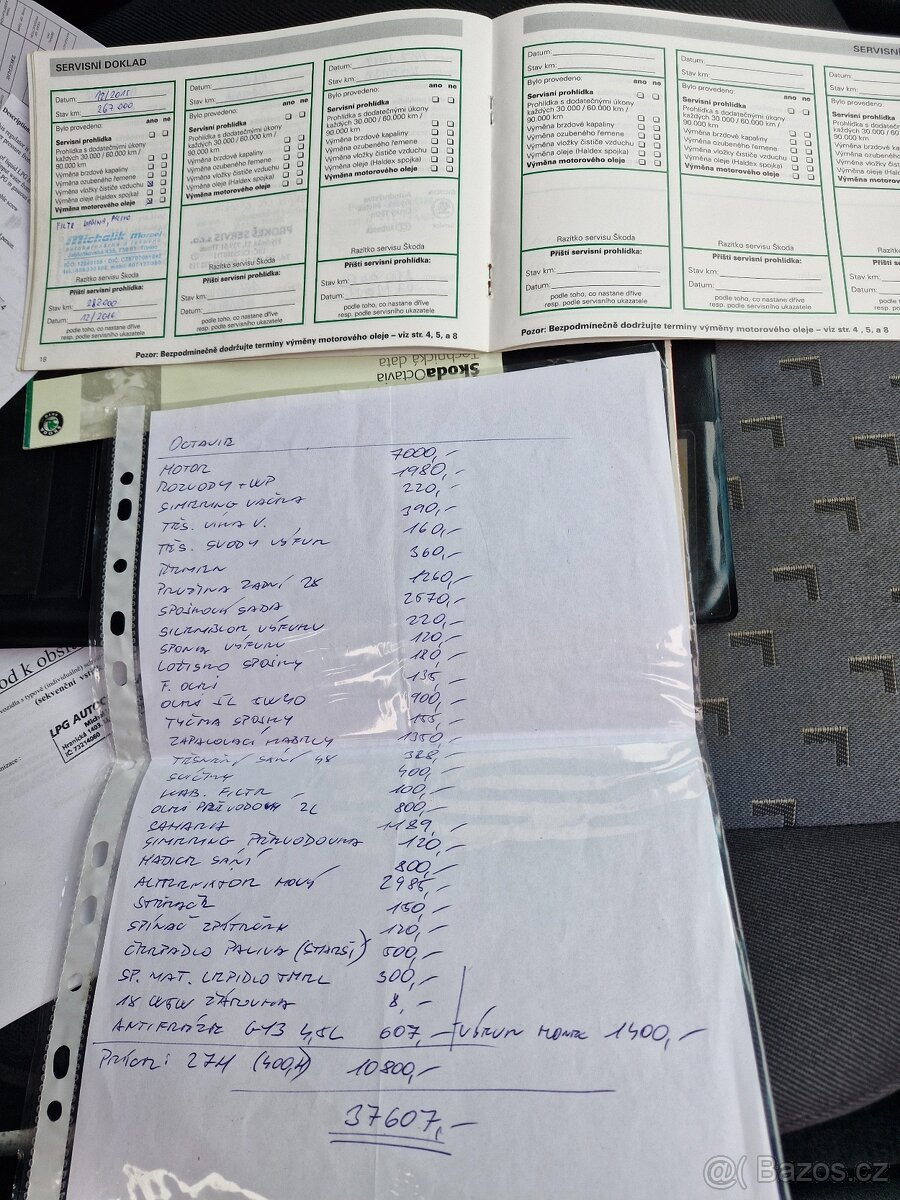 SERVISNÍ DOKLAD
Datum: 12/2015
Stav km: 267.000
Bylo provedeno: ano ne
Servisní prohlídka
Prohlídka s dodatečnými úkony
každých 30.000 / 60.000 km /
90.000 km
Výměna brzdové kapaliny
Výměna ozubeného řemene
Výměna vložky čističe vzduchu
Výměna oleje (Haldex spojka)
Výměna motorového oleje
Michalik Marcel
Razítko servisu Škoda
Příští servisní prohlídka:
Stav km: 282000
Datum: 12/2016
podle toho, co nastane dříve
resp. podle servisního ukazatele
18
Datum:
Stav km:
Bylo provedeno: ano ne
Servisní prohlídka
Prohlídka s dodatečnými úkony
každých 30.000 / 60.000 km /
90.000 km
Výměna brzdové kapaliny
Výměna ozubeného řemene
Výměna vložky čističe vzduchu
Výměna oleje (Haldex spojka)
Výměna motorového oleje
Razítko servisu Škoda
Příští servisní prohlídka:
Stav km:
Datum:
podle toho, co nastane dříve
resp. podle servisního ukazatele
Datum:
Stav km:
Bylo provedeno: ano ne
Servisní prohlídka
Prohlídka s dodatečnými úkony
každých 30.000 / 60.000 km /
90.000 km
Výměna brzdové kapaliny
Výměna ozubeného řemene
Výměna vložky čističe vzduchu
Výměna oleje (Haldex spojka)
Výměna motorového oleje
Razítko servisu Škoda
Příští servisní prohlídka:
Stav km:
Datum:
podle toho, co nastane dříve
resp. podle servisního ukazatele
Pozor: Bezpodmínečně dodržujte termíny výměny motorového oleje – viz str. 4, 5, a 8
SERVISNÍ
Datum:
Stav km:
Bylo provedeno: ano ne
Servisní prohlídka
Prohlídka s dodatečnými úkony
každých 30.000 / 60.000 km /
90.000 km
Výměna brzdové kapaliny
Výměna ozubeného řemene
Výměna vložky čističe vzduchu
Výměna oleje (Haldex spojka)
Výměna motorového oleje
Razítko servisu Škoda
Příští servisní prohlídka:
Stav km:
Datum:
podle toho, co nastane dříve
resp. podle servisního ukazatele
Datum:
Stav km:
Bylo provedeno: ano ne
Servisní prohlídka
Prohlídka s dodatečnými úkony
každých 30.000 / 60.000 km /
90.000 km
Výměna brzdové kapaliny
Výměna ozubeného řemene
Výměna vložky čističe vzduchu
Výměna oleje (Haldex spojka)
Výměna motorového oleje
Razítko servisu Škoda
Příští servisní prohlídka:
Stav km:
Datum:
podle toho, co nastane dříve
resp. podle servisního ukazatele
Pozor: Bezpodmínečně dodržujte termíny výměny motorového oleje – viz str. 4, 5, a 8
ŠkodaOctavia
Technická data
od k obslu
(sekvenční vst
LPG AUTO
Hronická 1403
IČ 73214086
OCTAVIE
MOTOR 7000,-
ROZVODY + WP 1980,-
SIMRING VAČKA 220,-
TĚS. VÍKA V. 390,-
TĚS. SVODY VÝFUK 160,-
ŘEMEN 360,-
PRUŽINA ZADNÍ 2X 1260,-
SPOJKOVÁ SADA 2670,-
SILENBLOK VÝFUKU 220,-
SPONA VÝFUKU 120,-
LOŽISKO SPOJKY 180,-
F. OLEJ 135,-
OLEJ 5L 5W40 900,-
TYČKA SPOJKY 155,-
ZAPALOVACÍ KABELY 1350,-
TĚSNĚNÍ SÁNÍ 4X 328,-
SVÍČKY 400,-
KAB. FILTR 100,-
OLEJ PŘEVODOVK 2L 800,-
1189,-
SIMRING PŘEVODOVKA 120,-
HADICE SÁNÍ 800,-
ALTERNÁTOR NOVÝ 2985,-
STĚRAČE 150,-
SPÍNAČ ZPÁTEČKA 120,-
ČERPADLO PALIVA (STARŠÍ) 500,-
SP. MAT. LEPIDLO TMEL 300,-
1X W5W ŽÁROVKA 8,-
ANTIFREEZE G13 4,5L 607,- VÝFUK 1400,-
PRÁCE: 27H (400,H) 10800,-
37607,-
@ Bazos.cz